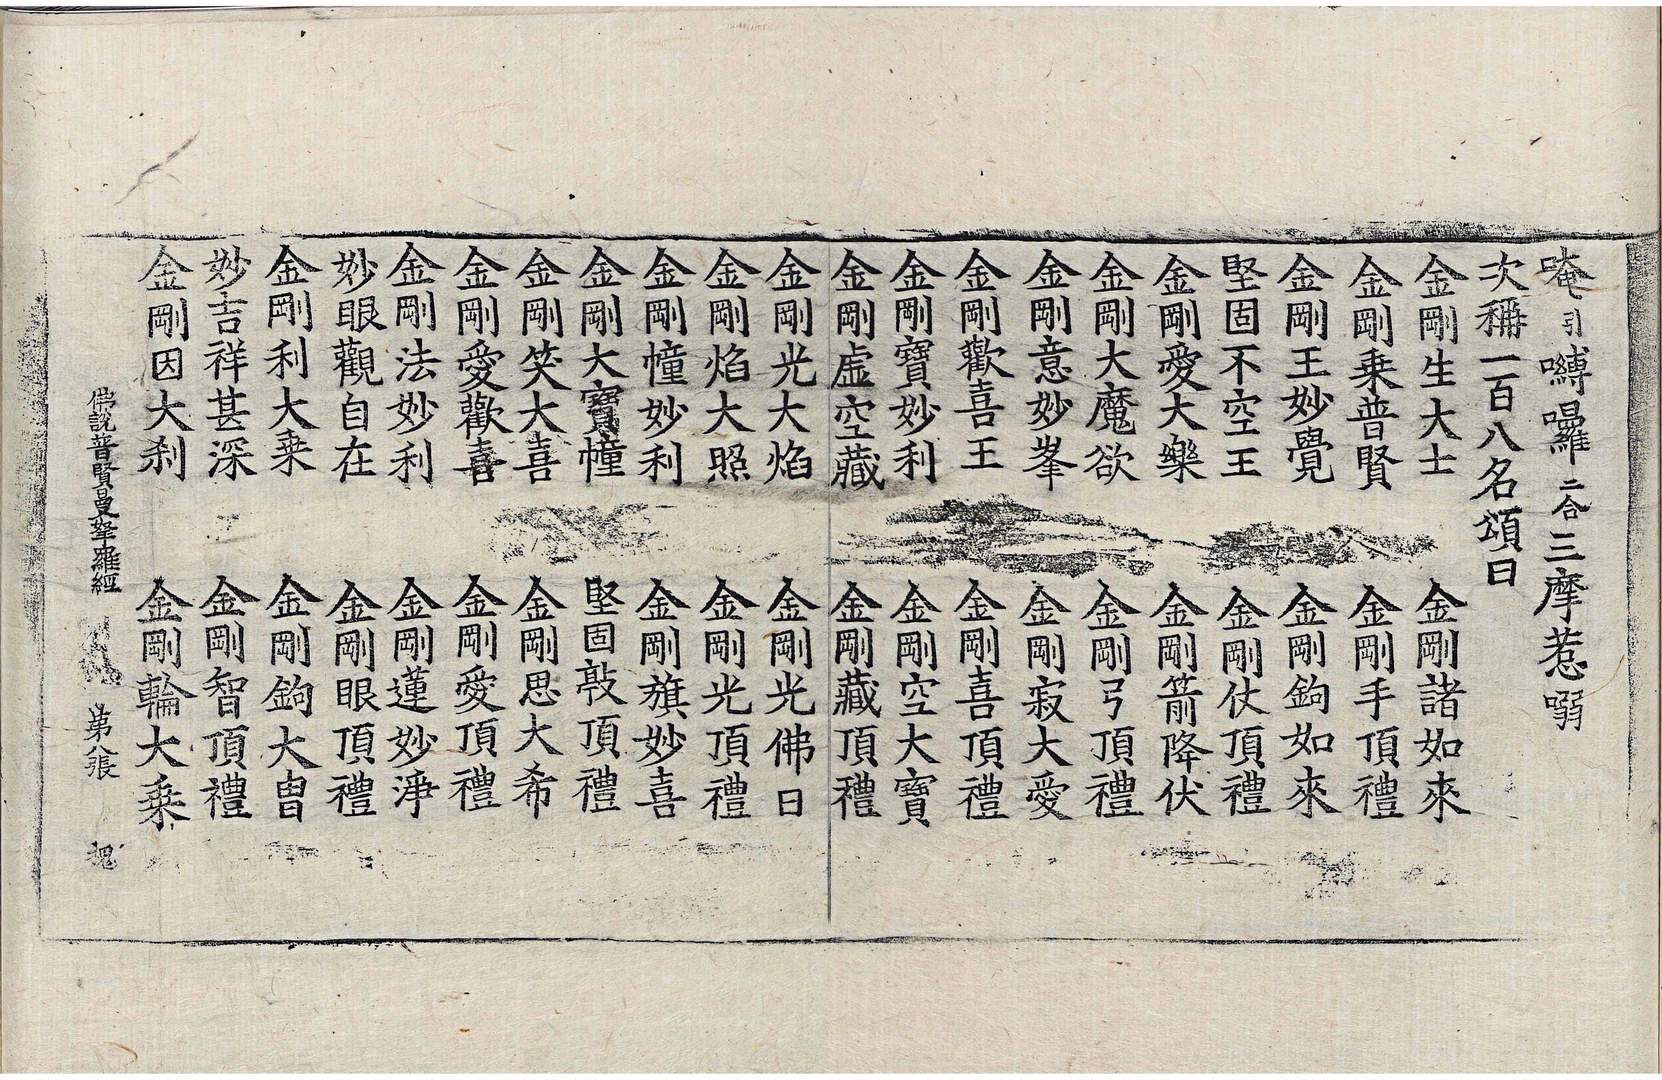 唵引嚩囉二合三摩惹嗗
次稱一百八名頌曰
金剛生大士 金剛諸如來
金剛乗普賢 金剛手頂禮
金剛王妙覺 金剛鉤如來
堅固不空王 金剛仗頂禮
金剛愛大樂 金剛箭降伏
金剛大魔欲 金剛弓頂禮
金剛意妙峯 金剛寂大愛
金剛歡喜王 金剛喜頂禮
金剛寶妙利 金剛空大寶
金剛虛空藏 金剛藏頂禮
金剛光大焰 金剛光佛日
金剛焰大照 金剛光頂禮
金剛幢妙利 金剛旗妙喜
金剛大寶幢 堅固敦頂禮
金剛笑大喜 金剛思大希
金剛愛歡喜 金剛愛頂禮
金剛法妙利 金剛蓮妙淨
妙眼觀自在 金剛眼頂禮
金剛利大乗 金剛鉤大冑
妙吉祥甚深 金剛智頂禮
金剛因大刹 金剛輪大乗
佛說普賢曼拏羅經 第八張 槐